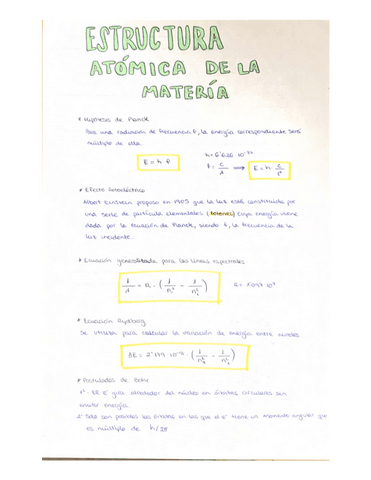 ESTRUCTURA
ATÓMICA DE LA
MATERÍA
* Hipótesis de Planck
Para una radiación de frecuencia f, la energía correspondiente será
múltiplo de ella.
h = 6'626 · 10⁻³⁴
E = h · f
f = c/λ ⟶ E = h · c/λ
* Efecto fotoeléctrico
Albert Einstein propuso en 1905 que la luz esté constituida por
una serie de partícula elementales (fotones) cuya energía viene
dada por la ecuación de Planck, siendo f, la frecuencia de la
luz incidente.
* Ecuación generalizada para las líneas espectrales
1/λ = R · (1/n₁² − 1/n₂²) R = 1'097 · 10⁷
* Ecuación Rydberg
Se utiliza para calcular la variación de energía entre niveles
ΔE = 2'179 · 10⁻¹⁸ · (1/n₁² − 1/n₂²)
* Postulados de Bohr
1º- El e⁻ gira alrededor del núcleo en órbitas circulares sin
emitir energía.
2º Solo son posibles las órbitas en las que el e⁻ tiene un momento angular que
es múltiplo de h/2π